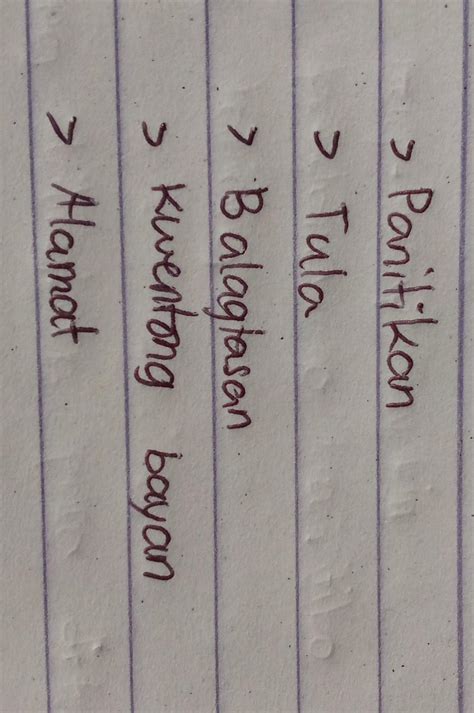 > Panitikan
> Tula
> Balagtasan
> Kwentong bayan
> Alamat